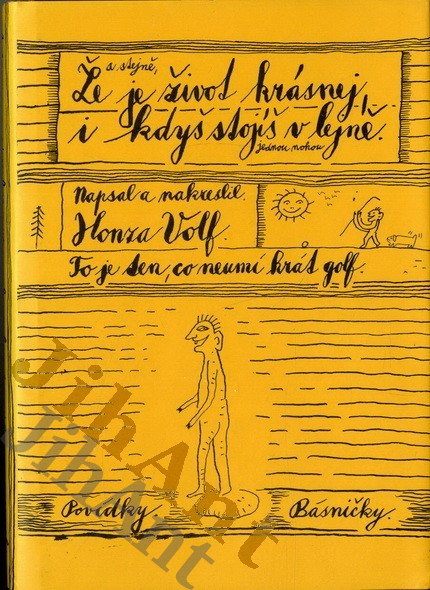 a stejně,
Že je život krásnej,
i kdyš stojíš v lejně.
jednou nohou
Napsal a nakreslil
Honza Volf.
To je ten, co neumí hrát golf.
Povídky.
Básničky.
JihAnt
JihAnt